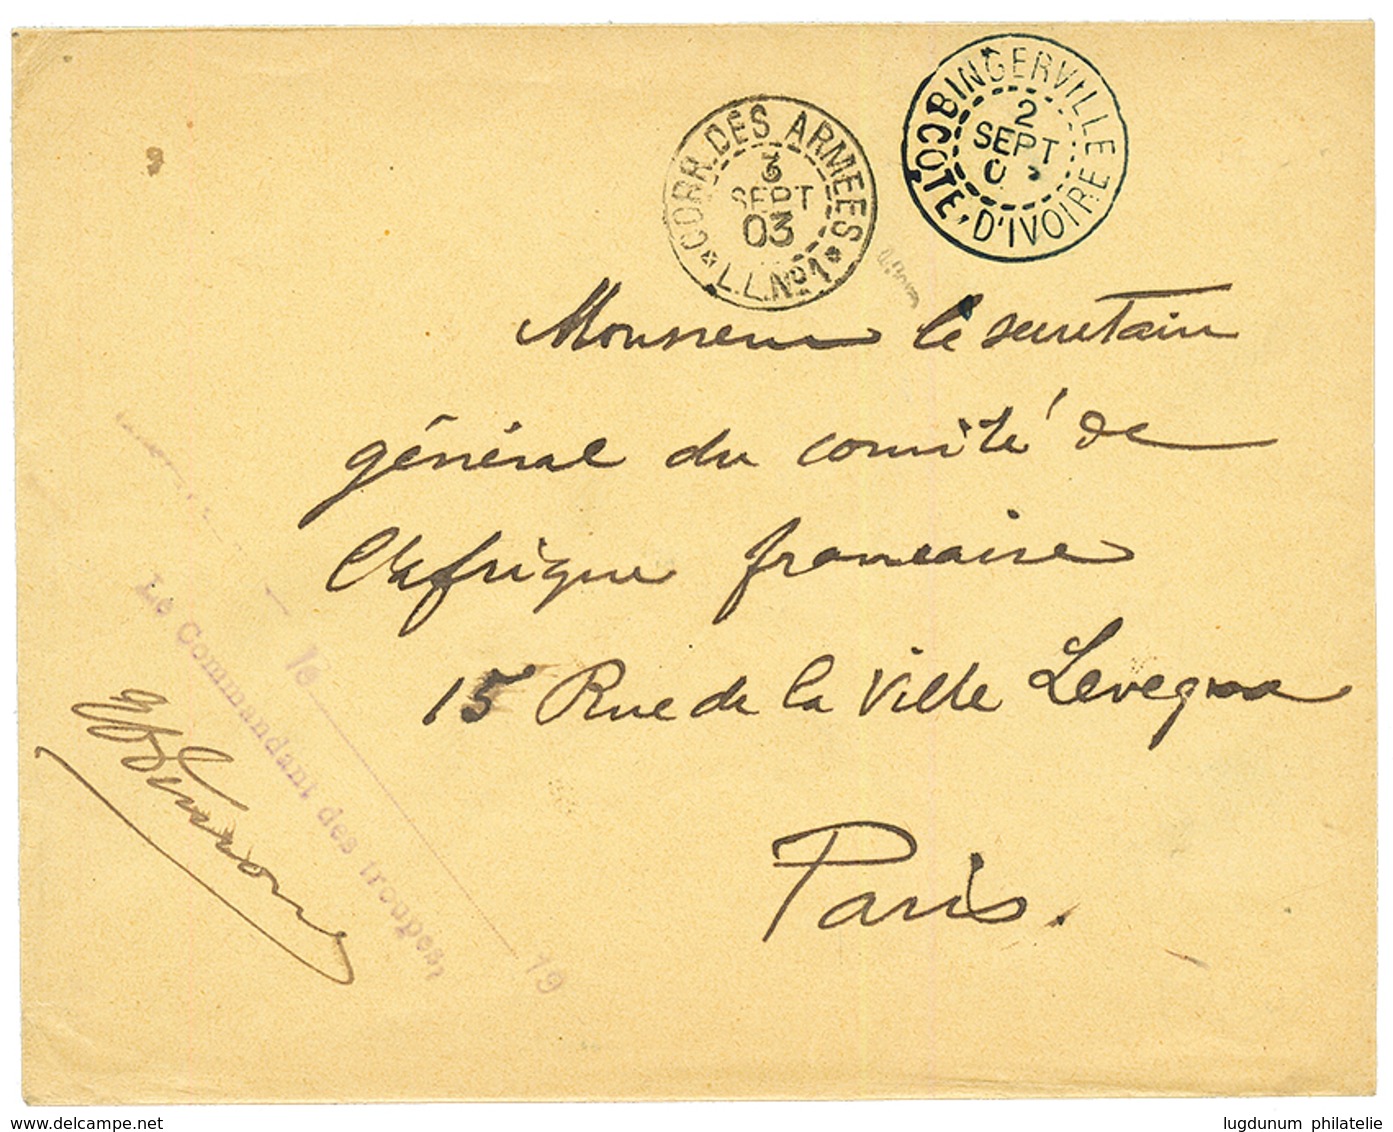 BINGERVILLE
2
SEPT
0
CÔTE D'IVOIRE
CORR. DES ARMEES
3
SEPT
03
* L.L. Nº1 *
Monsieur le secretair
général du comité de
l'afrique francaise
15 Rue de la Ville Leveque
Paris.
le 19
Le Commandant des troupes,
www.delcampe.net
lugdunum philatelie